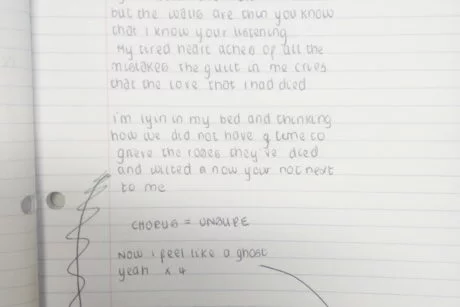 but the walls are thin you know
that i know your listening
My tired heart aches of all the
mistakes the guilt in me cries
that the love that i had died
i'm lyin in my bed and thinking
how we did not have a time to
grieve the roses they've died
and wilted n now your not next
to me
CHORUS = UNSURE
Now i feel like a ghost
yeah x 4